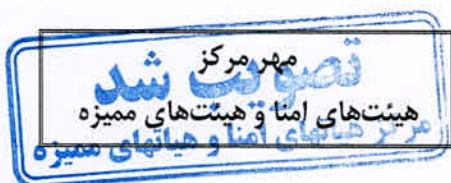 مهر مرکز
تصویب شد
هیئت‌های امنا و هیئت‌های ممیزه
مرکز هیاتهای امنا و هیاتهای ممیزه